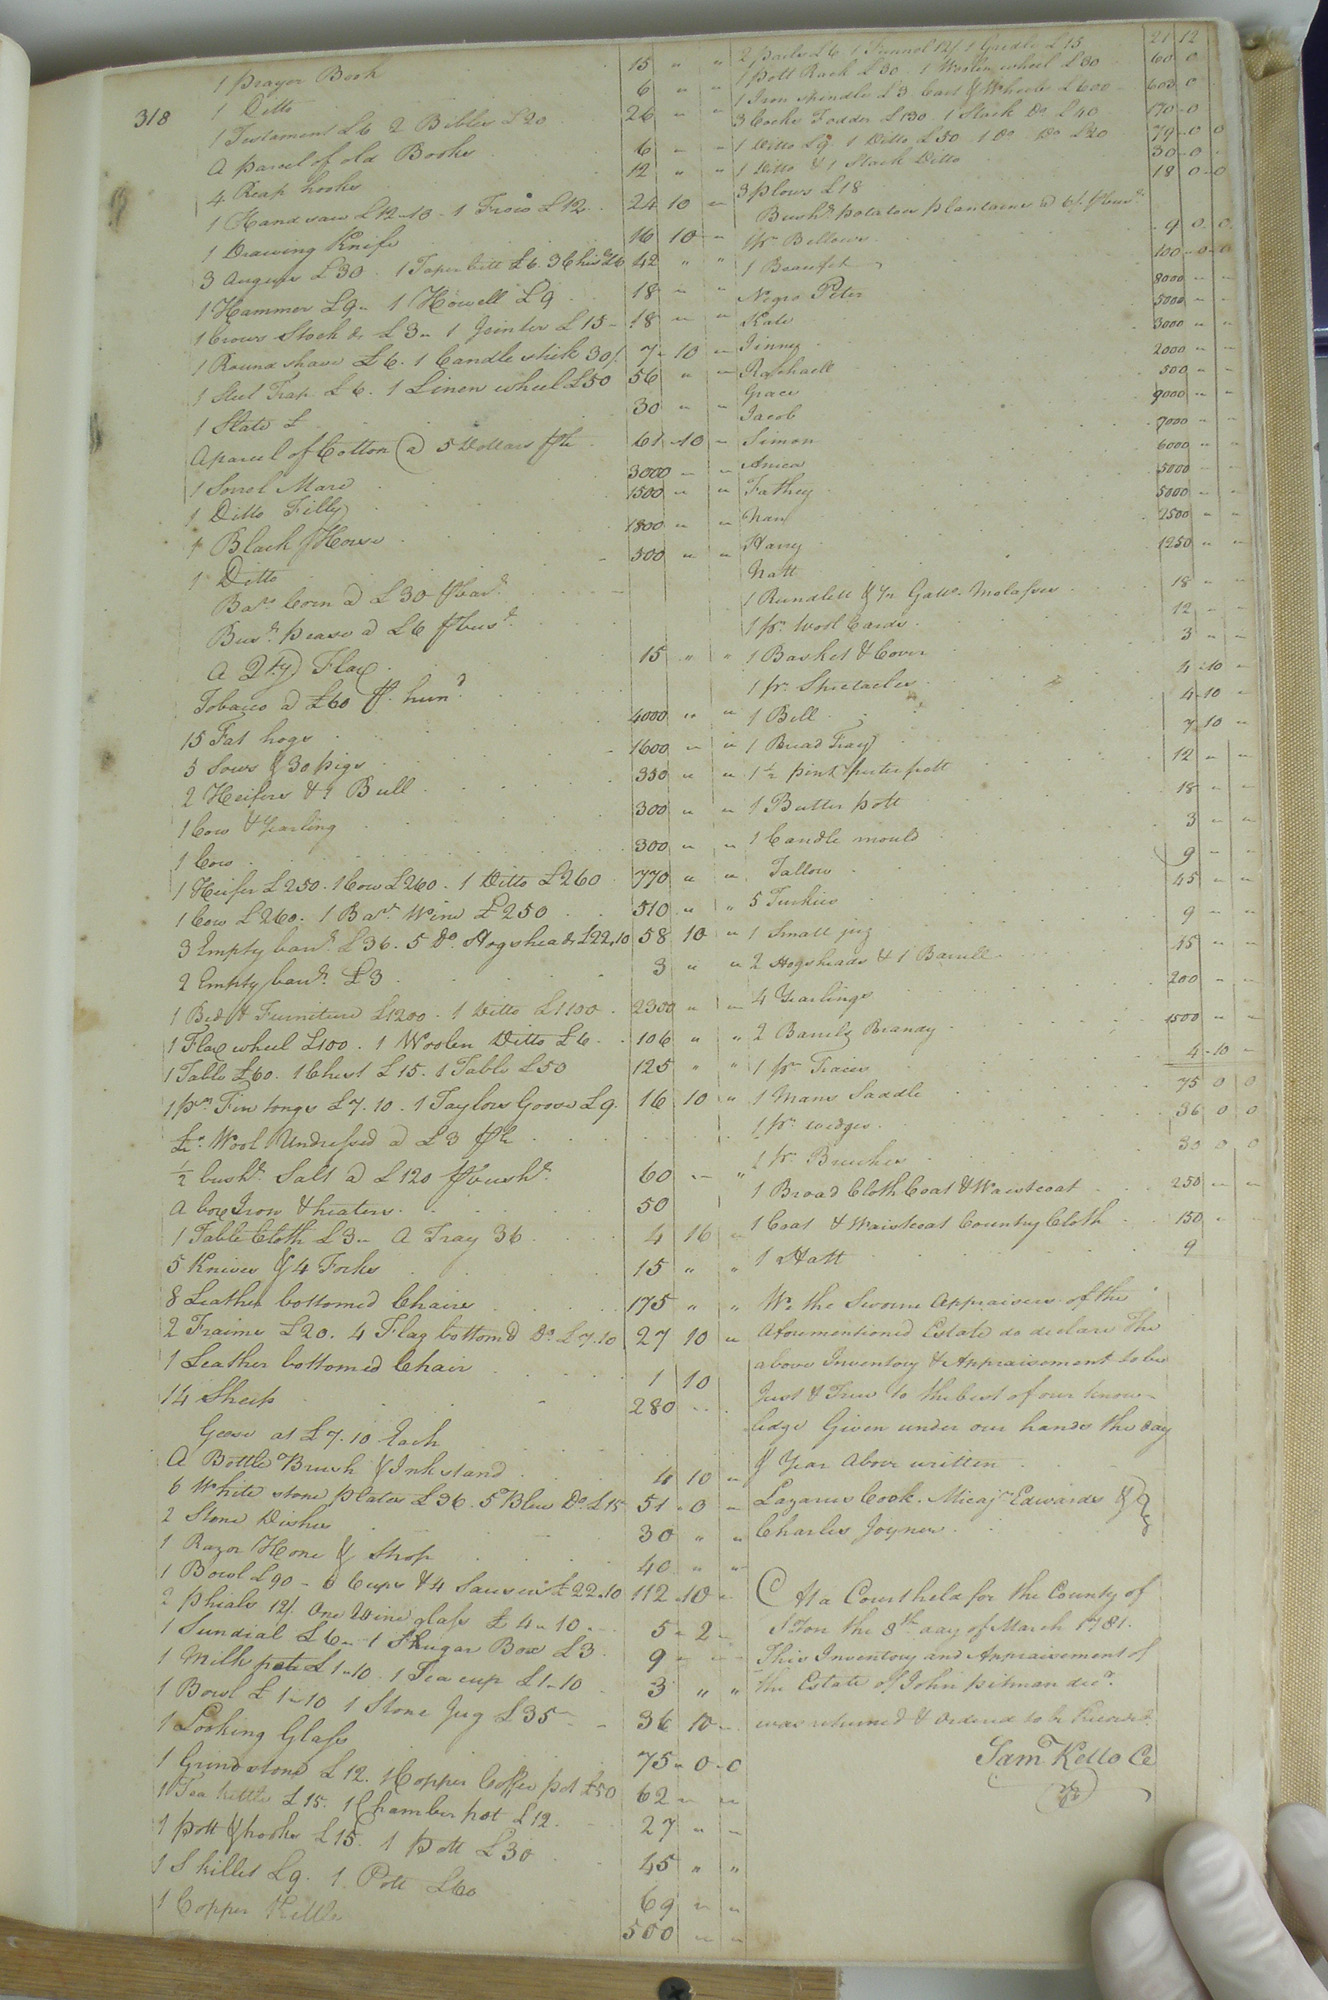 318
1 Prayer Book 15 " "
1 Ditto 6 " "
1 Testament £6 2 Bibles £20 26 " "
A parcel of old Books 6 " "
4 Reap hooks 12 " "
1 Hand saw £12.10 - 1 Frow £12 24 10 "
1 Drawing Knife 16 10 "
3 Augers £30 . 1 Taper bitt £6. 3 Chis.ls £6 42 " "
1 Hammer £9 " 1 Howell £9 18 " "
1 Crows Stock &c £3 " 1 Jointer £15 18 " "
1 Round shave £6. 1 Candle stick 30/ 7 10 "
1 Steel Trap £6. 1 Linen wheel £50 56 " "
1 Slate £ 30 " "
A parcel of Cotton @ 5 Dollars ℔ 61 10 "
1 Sorrel Mare 3000 " "
1 Ditto Filly 1500 " "
1 Black Horse 1800 " "
1 Ditto 500 " "
Bar.s Corn @ £30 ⅌ bar.l
Bus.l pease @ £6 ⅌ bus.l
A Q.ty Flax 15 " "
Tobacco @ £60 ⅌. hun.d
15 Fat hogs 4000 " "
5 Sows & 30 pigs 1600 " "
2 Heifers & 1 Bull 350 " "
1 Cow & Yearling 300 " "
1 Cow 300 " "
1 Heifer £250. 1 Cow £260. 1 Ditto £260 770 " "
1 Cow £260. 1 Bar.l Wine £250 510 " "
3 Empty bar.ls £36. 5 Do. Hogsheads £22.10 58 10 "
2 Empty bar.ls £3 3 " "
1 Bed & Furniture £1200 . 1 Ditto £1100 2300 " "
1 Flax wheel £100 . 1 Woolen Ditto £6 106 " "
1 Table £60. 1 Chest £15. 1 Table £50 125 " "
1 p.r Fire tongs £7.10 . 1 Taylors Goose £9 16 10 "
Wool Undressed @ £3 ⅌
½ bush.l Salt @ £120 ⅌ bush.l 60 " "
A box Iron & heaters 50
1 Table Cloth £3 " A Tray 36 4 16 "
5 Knives & 4 Forks 15 " "
8 Leather bottomed Chairs 175 " "
2 Fraims £20. 4 Flag bottomd Do. £7.10 27 10 "
1 Leather bottomed Chair 1 10
14 Sheep 280 " "
Geese at £7.10 Each
A Bottle Brush & Inkstand 4 10 "
6 White stone plates £36. 5 Blew Do. £15 51 0 "
2 Stone Dishes 30 " "
1 Razor Hone & Strop 40 " "
1 Bowl £90 - 6 Cups & 4 Saucers £22.10 112 10 "
2 phials 12/. One Wine glass £4.10 5 2 "
1 Sundial £6 " 1 Shugar Box £3 9 " "
1 Milk pot £1.10 . 1 Tea cup £1.10 3 " "
1 Bowl £1.10 1 Stone Jug £35 36 10 "
1 Looking Glass 75 0 0
1 Grindstone £12. 1 Copper Coffee pot £50 62 " "
1 Tea kettle £15. 1 Chamber pot £12 27 " "
1 pott & hooks £15. 1 pott £30 45 " "
1 Skillet £9. 1 Pott £60 69 " "
1 Copper Kettle 500 " "
2 pails £6. 1 Funnel 12/ 1 Gridle £15 21 12
1 pott Rack £30 . 1 Woolen wheel £30 60 0
1 Iron spindle £3 Cart & Wheels £600 603 0
3 Cocks Fodder £130 . 1 Stack Do. £40 170 0
1 Ditto £9. 1 Ditto £50 1 Do. Do. £20 79 0 0
1 Ditto & 1 Stack Ditto 30 0
3 plows £18 18 0 0
Bush.l potatoes plantains @ 6/.
1 p.r Bellows 9 0 0
1 Beaufett 100 0 0
Negro Peter 8000 " "
Kate 5000 " "
Jinney 3000 " "
Raphaell 2000 " "
Grace 500 " "
Jacob 9000 " "
Simon 7000 " "
Anica 6000 " "
Fathey 5000 " "
Nan 5000 " "
Harry 2500 " "
Natt 1250 " "
1 Rundlett & Gall.s Molasses 18 " "
1 p.r Wool Cards 12 " "
1 Basket & Cover 3 " "
1 p.r Spectacles 4 10 "
1 Bell 4 10 "
1 Bread Tray 7 10 "
1 ½ pint puter pott 12 " "
1 Butter pott 18 " "
1 Candle mould 3 " "
Tallow 9 " "
5 Turkies 45 " "
1 Small jug 9 " "
2 Hogsheads & 1 Barrell 15 " "
4 Yearlings 200 " "
2 Barrels Brandy 1500 " "
1 p.r Traces 4 10 "
1 Mans Saddle 75 0 0
1 p.r wedges 36 0 0
1 p.r Breeches 30 0 0
1 Broad Cloth Coat & Waistcoat 250 " "
1 Coat & Waistcoat Country Cloth 150 "
1 Hatt 9
We the Sworne Appraisers of the
Aforementioned Estate do declare The
above Inventory & Appraisement to be
Just & True to the best of our know-
ledge Given under our hands the day
& Year Above written
Lazarus Cook. Micaj.h Edwards &
Charles Joyner.
At a Court held for the County of
S'ton the 8th day of March 1781.
This Inventory and Appraisement of
the Estate of John pitman dec.d
was returned & ordered to be Record.d
Sam.l Kello Cc